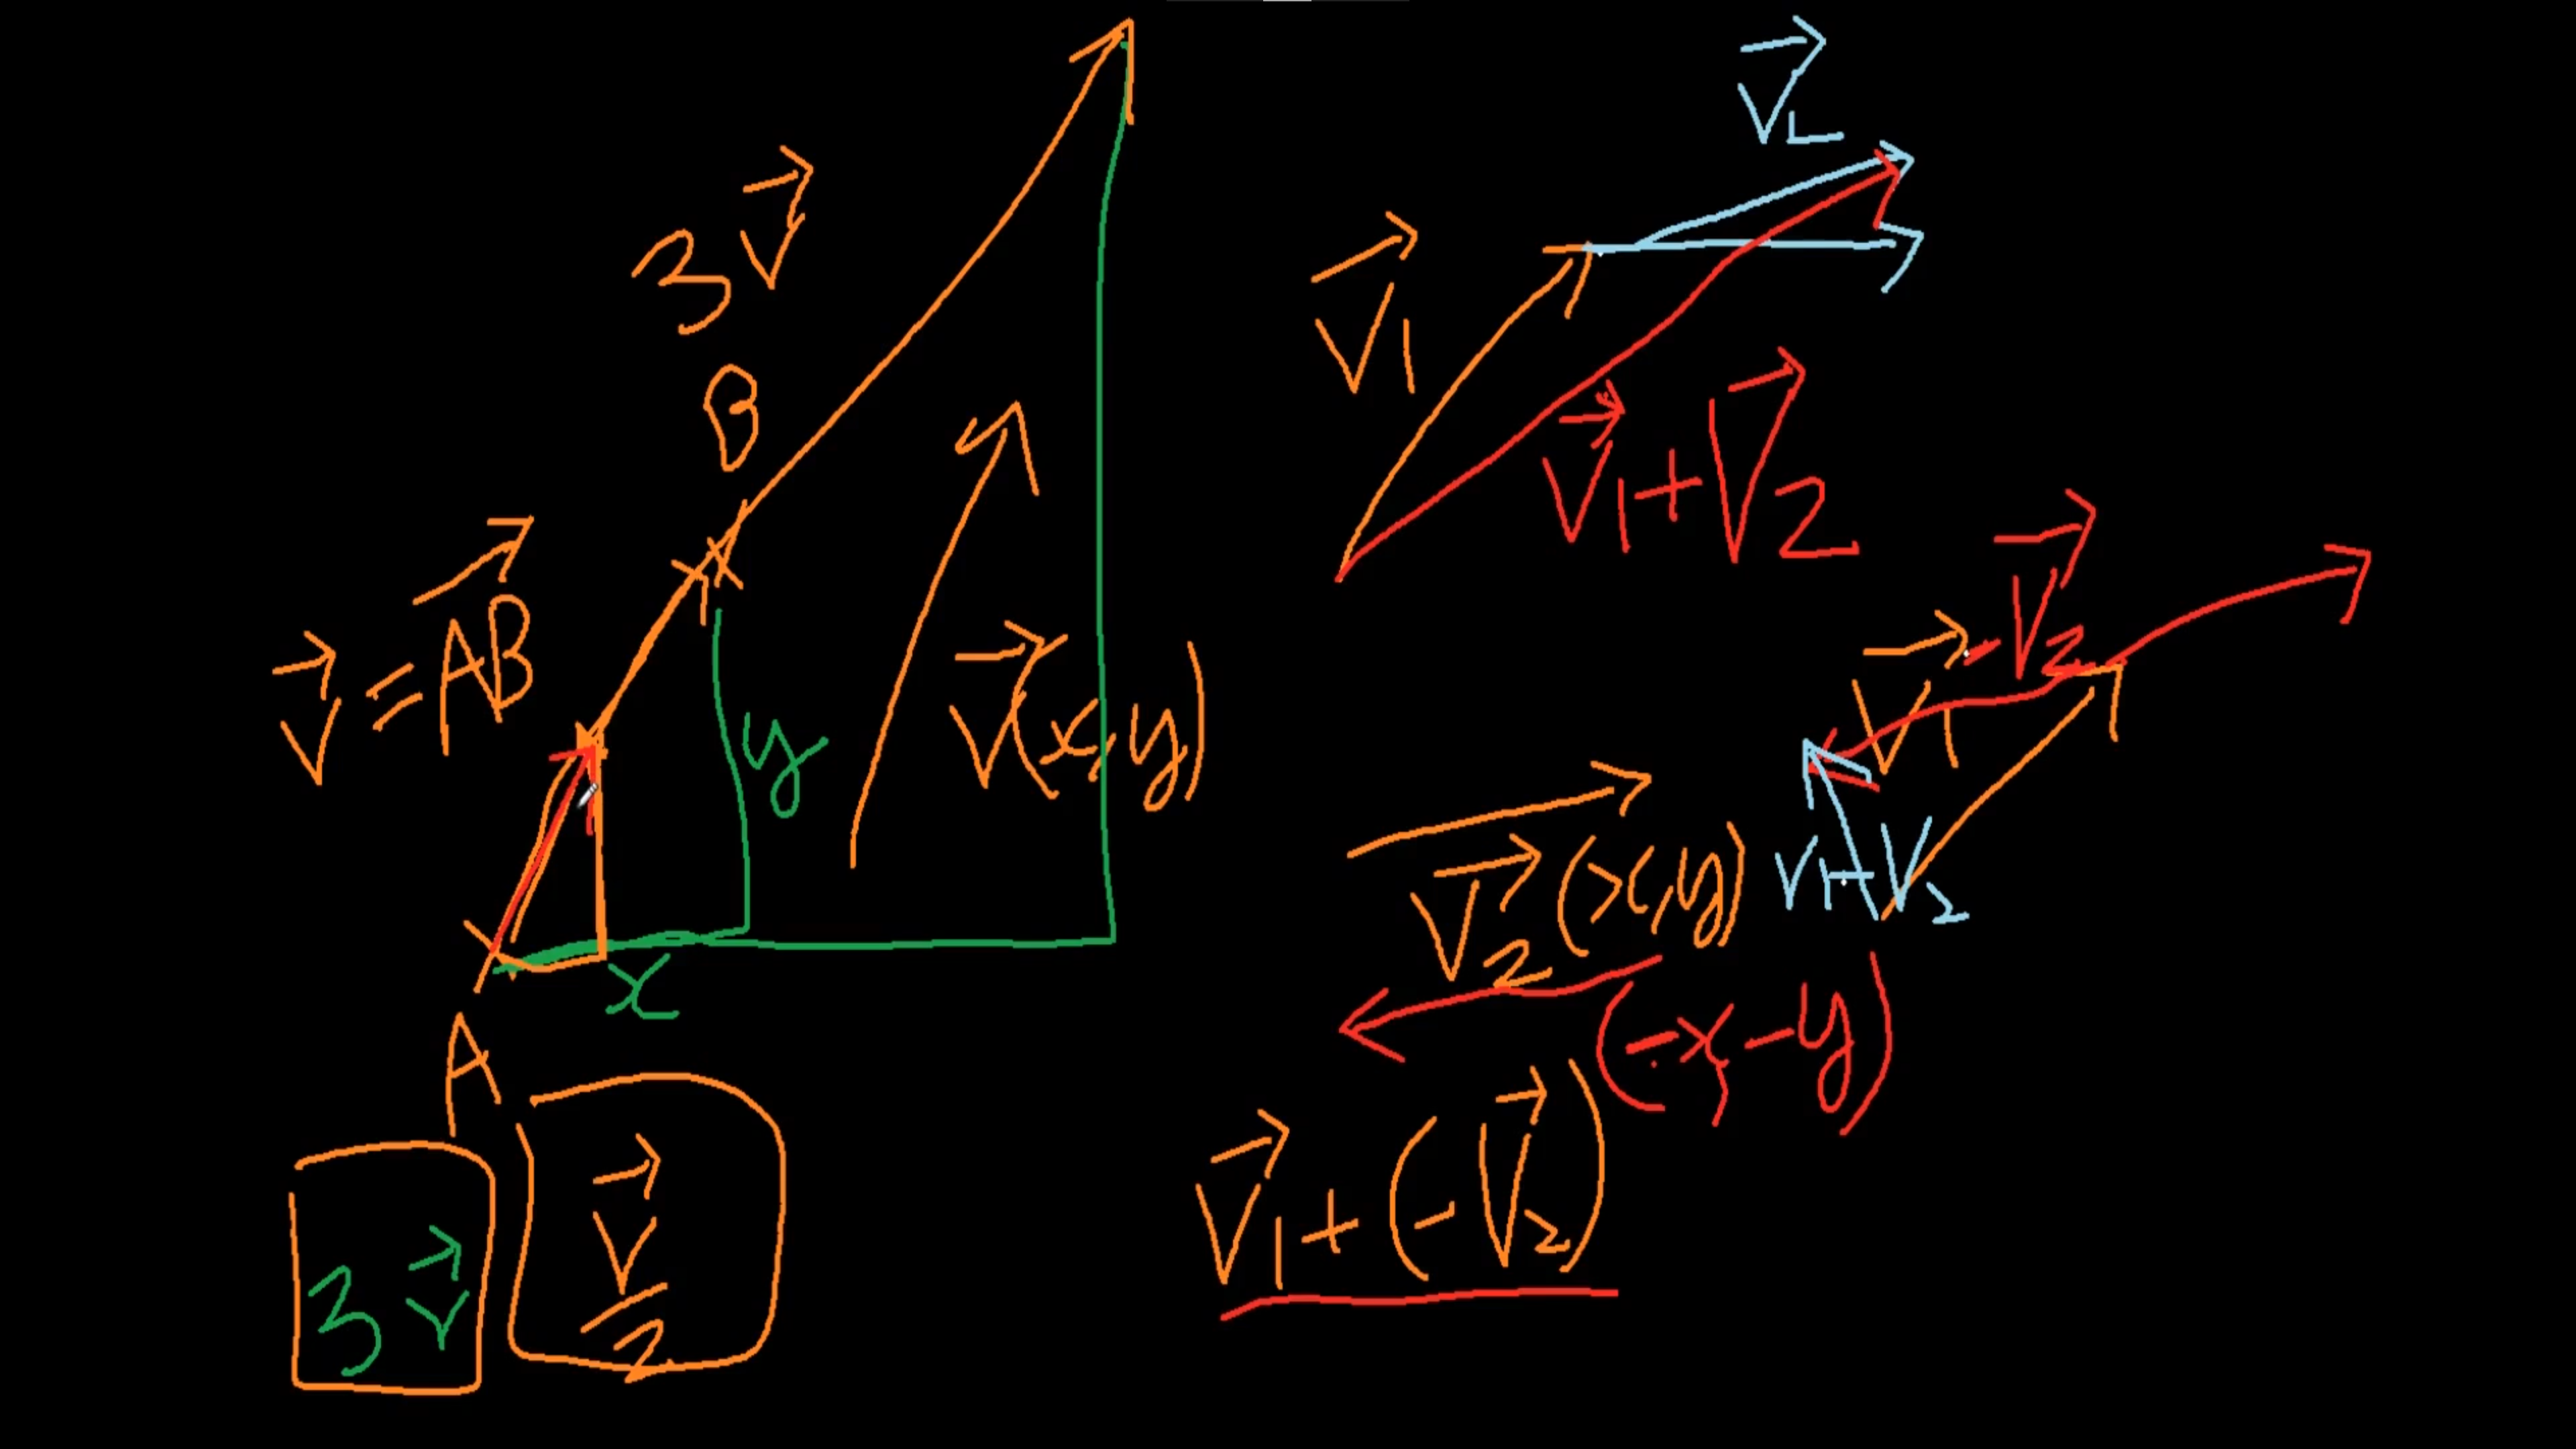 3 v⃗
B
v⃗ = AB⃗
y
v⃗(x,y)
x
A
3 v⃗
v⃗/2
v⃗L
v⃗1
v⃗1+v⃗2
-v⃗2
v⃗1
v⃗2(x,y)
v1-v2
(-x,-y)
v⃗1+(-v⃗2)